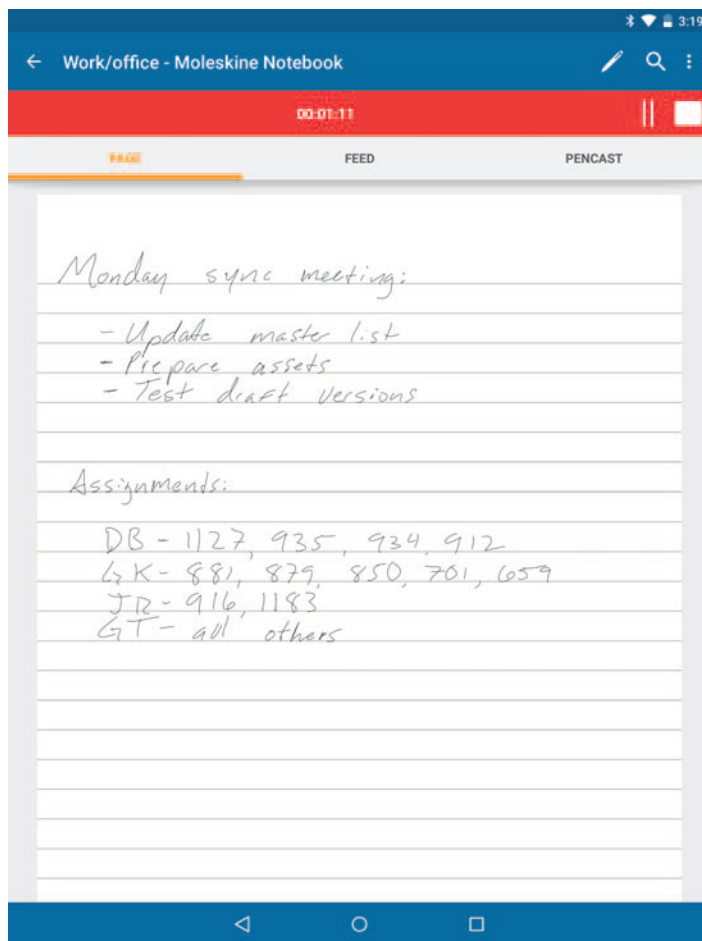 3:19
Work/office - Moleskine Notebook
00:01:11
PAGE FEED PENCAST
Monday sync meeting:
- Update master list
- Prepare assets
- Test draft versions
Assignments:
DB - 1127, 935, 934, 912
GK - 881, 879, 850, 701, 659
JR - 916, 1183
GT - all others